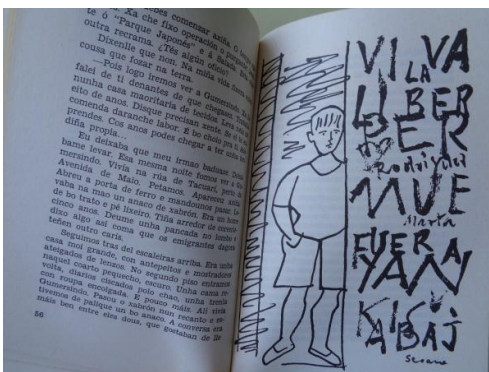 comenzar axiña. O
Xa che fixo operación o
te ó "Parque Japonés" e á Salada.
outra recrama. ¿Tés algún oficio?
Dixenlle que non. Na miña vida fixera
cousa que fozar na terra.
—Pois logo iremos ver a Gumersindo. Xa lle
falei de ti denantes de que chegases.
nunha casa maoritaria de tecidos. Leva
eito de anos. Disque precisan xente. Se el te
comenda daranche labor. É bo choio pra ti si
prendes. Cos anos podes chegar a ter unha
diña propia...
Eu deixaba que meu irmao baduase.
bame levar. Esa mesma noite fomos ver a
mersindo. Vivía na rúa de Tacuarí, perto da
Avenida de Maio. Petamos. Apareceu
Abreu a porta de ferro e mandounos pasar. Le-
vaba na mao un anaco de xabrón. Era un home
de bo trato e pé lixeiro. Tiña arredor de corenta-
cinco anos. Deume unha pancada no lombo e
dixo algo así coma que os emigrantes dagora
teñen outro caris.
Seguimos tras del escaleiras arriba. Era unha
casa moi grande, con antepeitos e mostradores
ateigados de lenzos. No segundo piso entramos
naquel coarto pequeño, escuro. Unha cama re-
volta, diarios ciscados polo chao, unha trenla
con roupa encolgada. E pouco máis. Alí vivía
Gumersindo. Pasou o xabrón nun recanto e es-
tivemos de palique un bo anaco. A conversa era
máis ben entre eles dous, que gostaban de lle
56
VIVA
LA
LIBER
PER
Rodríguez
MUE
Marta
FUERA
YAN
KIS
ABAJ
Seoane